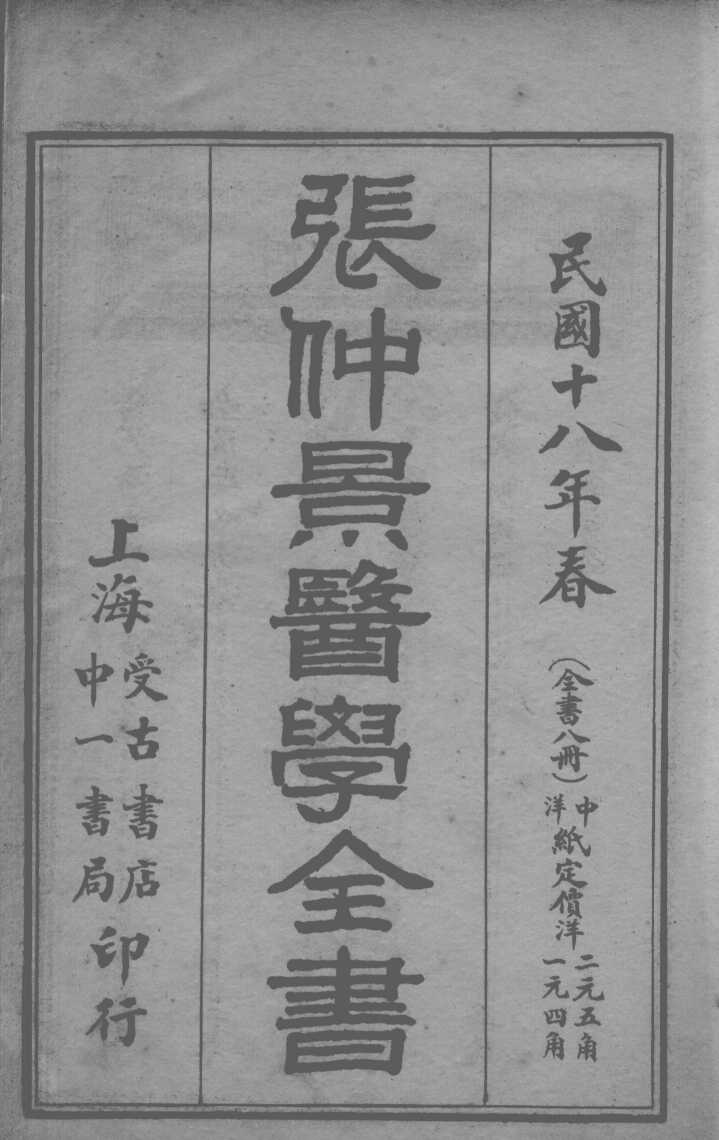 民國十八年春
（全書八冊）
中洋紙定價洋
二元五角
一元四角
張仲景醫學全書
上海
受古書店
中一書局
印行